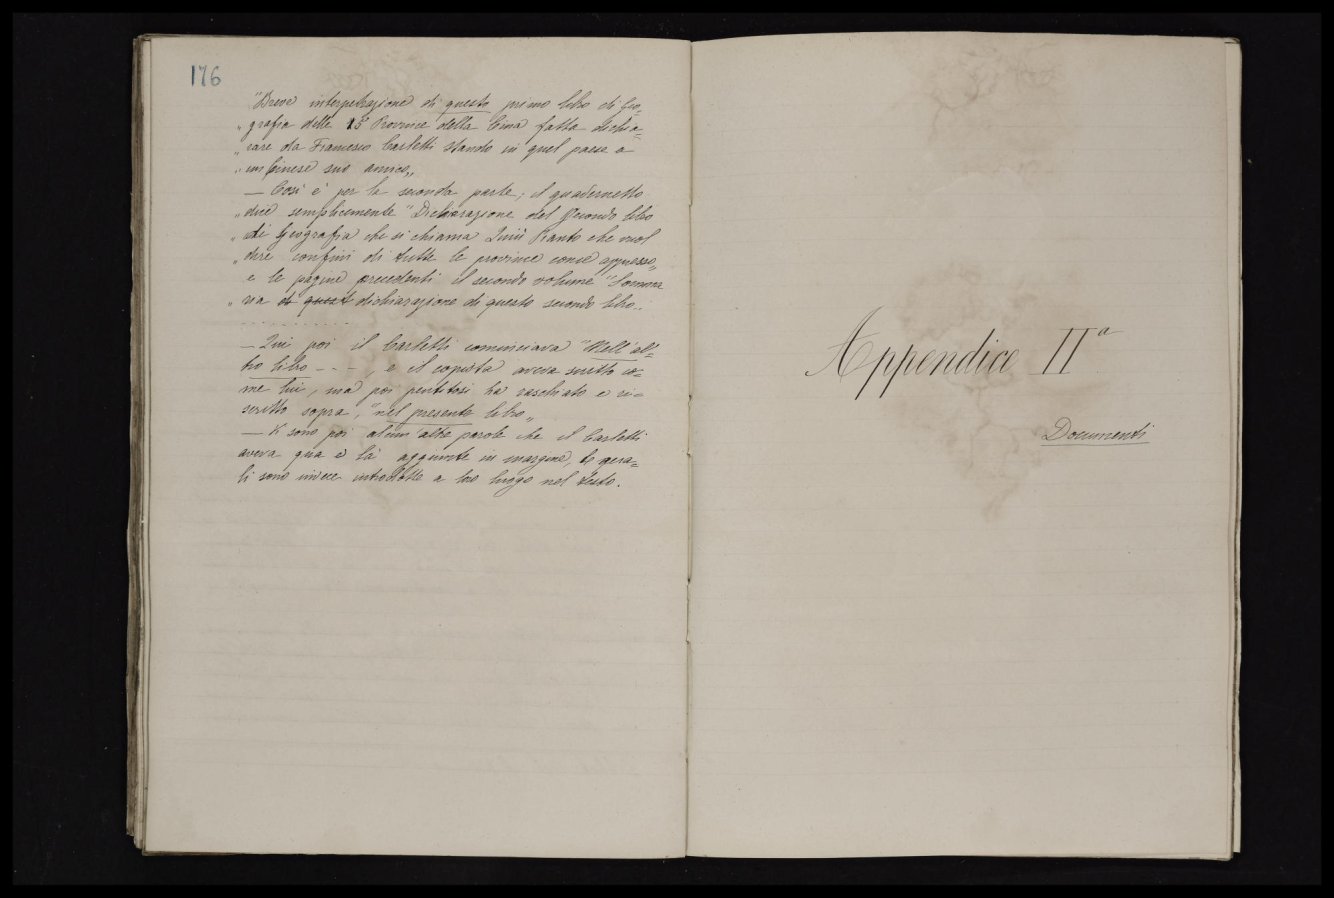 176
"Breve interpetrazione di questo primo libro di Geo=
„ grafia delle 15 Province della Cina fatta dichia=
„ rare da Francesco Carletti stando in quel paese a
„ un Cinese suo amico„
— Così è per la seconda parte; il quadernetto
„ dice semplicemente "Dichiarazione del secondo libro
„ di Geografia che si chiama Quiù Kanto che vuol
„ dire confini di tutte le province come appresso„
e le pagine precedenti il secondo volume "Somma
„ ria di quest dichiarazione di questo secondo libro..
. . . . . . . . . .
— Qui poi il Carletti cominciava "Nell'al=
tro libro - - - , e il copista aveva scritto co=
me lui, ma poi pentitosi ha raschiato e ri=
scritto sopra, "nel presente libro„
— Vi sono poi alcun'altre parole che il Carletti
aveva qua e là aggiunte in margine, le qua=
li sono invece introdotte a loro luogo nel testo.
Appendice IIa
Documenti